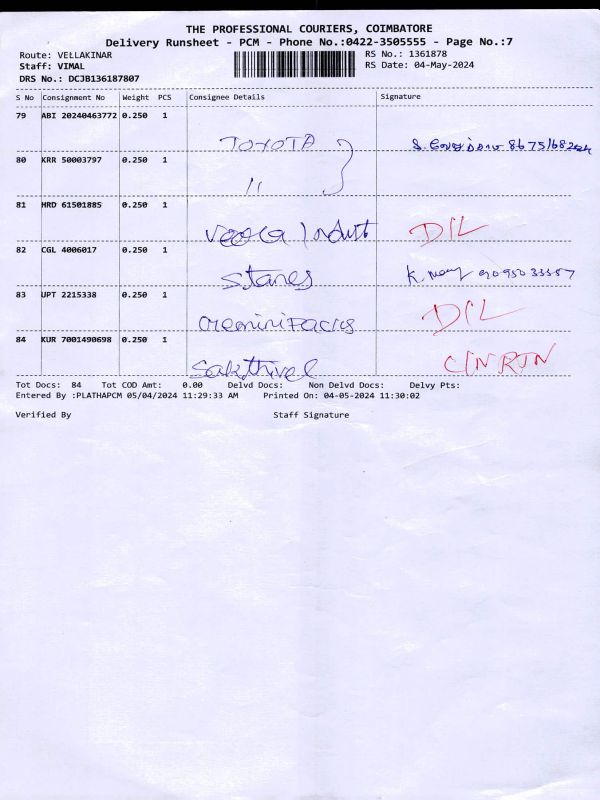 THE PROFESSIONAL COURIERS, COIMBATORE
Delivery Runsheet - PCM - Phone No.:0422-3505555 - Page No.:7
Route: VELLAKINAR
RS No.: 1361878
Staff: VIMAL
RS Date: 04-May-2024
DRS No.: DCJB136187807
S No Consignment No Weight PCS Consignee Details Signature
79 ABI 20240463772 0.250 1
TOYOTA
80 KRR 50003797 0.250 1
11
81 HRD 61501885 0.250 1
D/L
82 CGL 4006017 0.250 1
Stanes K.
83 UPT 2215338 0.250 1
D/L
84 KUR 7001490698 0.250 1
Sakthivel
Tot Docs: 84 Tot COD Amt: 0.00 Delvd Docs: Non Delvd Docs: Delvy Pts:
Entered By :PLATHAPCM 05/04/2024 11:29:33 AM Printed On: 04-05-2024 11:30:02
Verified By Staff Signature